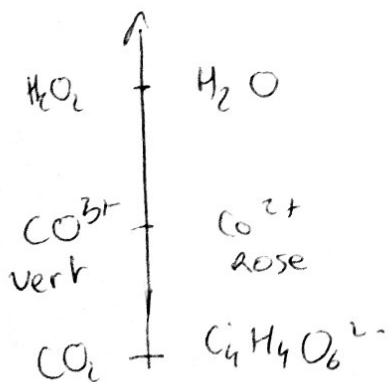 H₂O₂ H₂O
CO³⁺ Co²⁺
vert Rose
CO₂ C₄H₄O₆²⁻